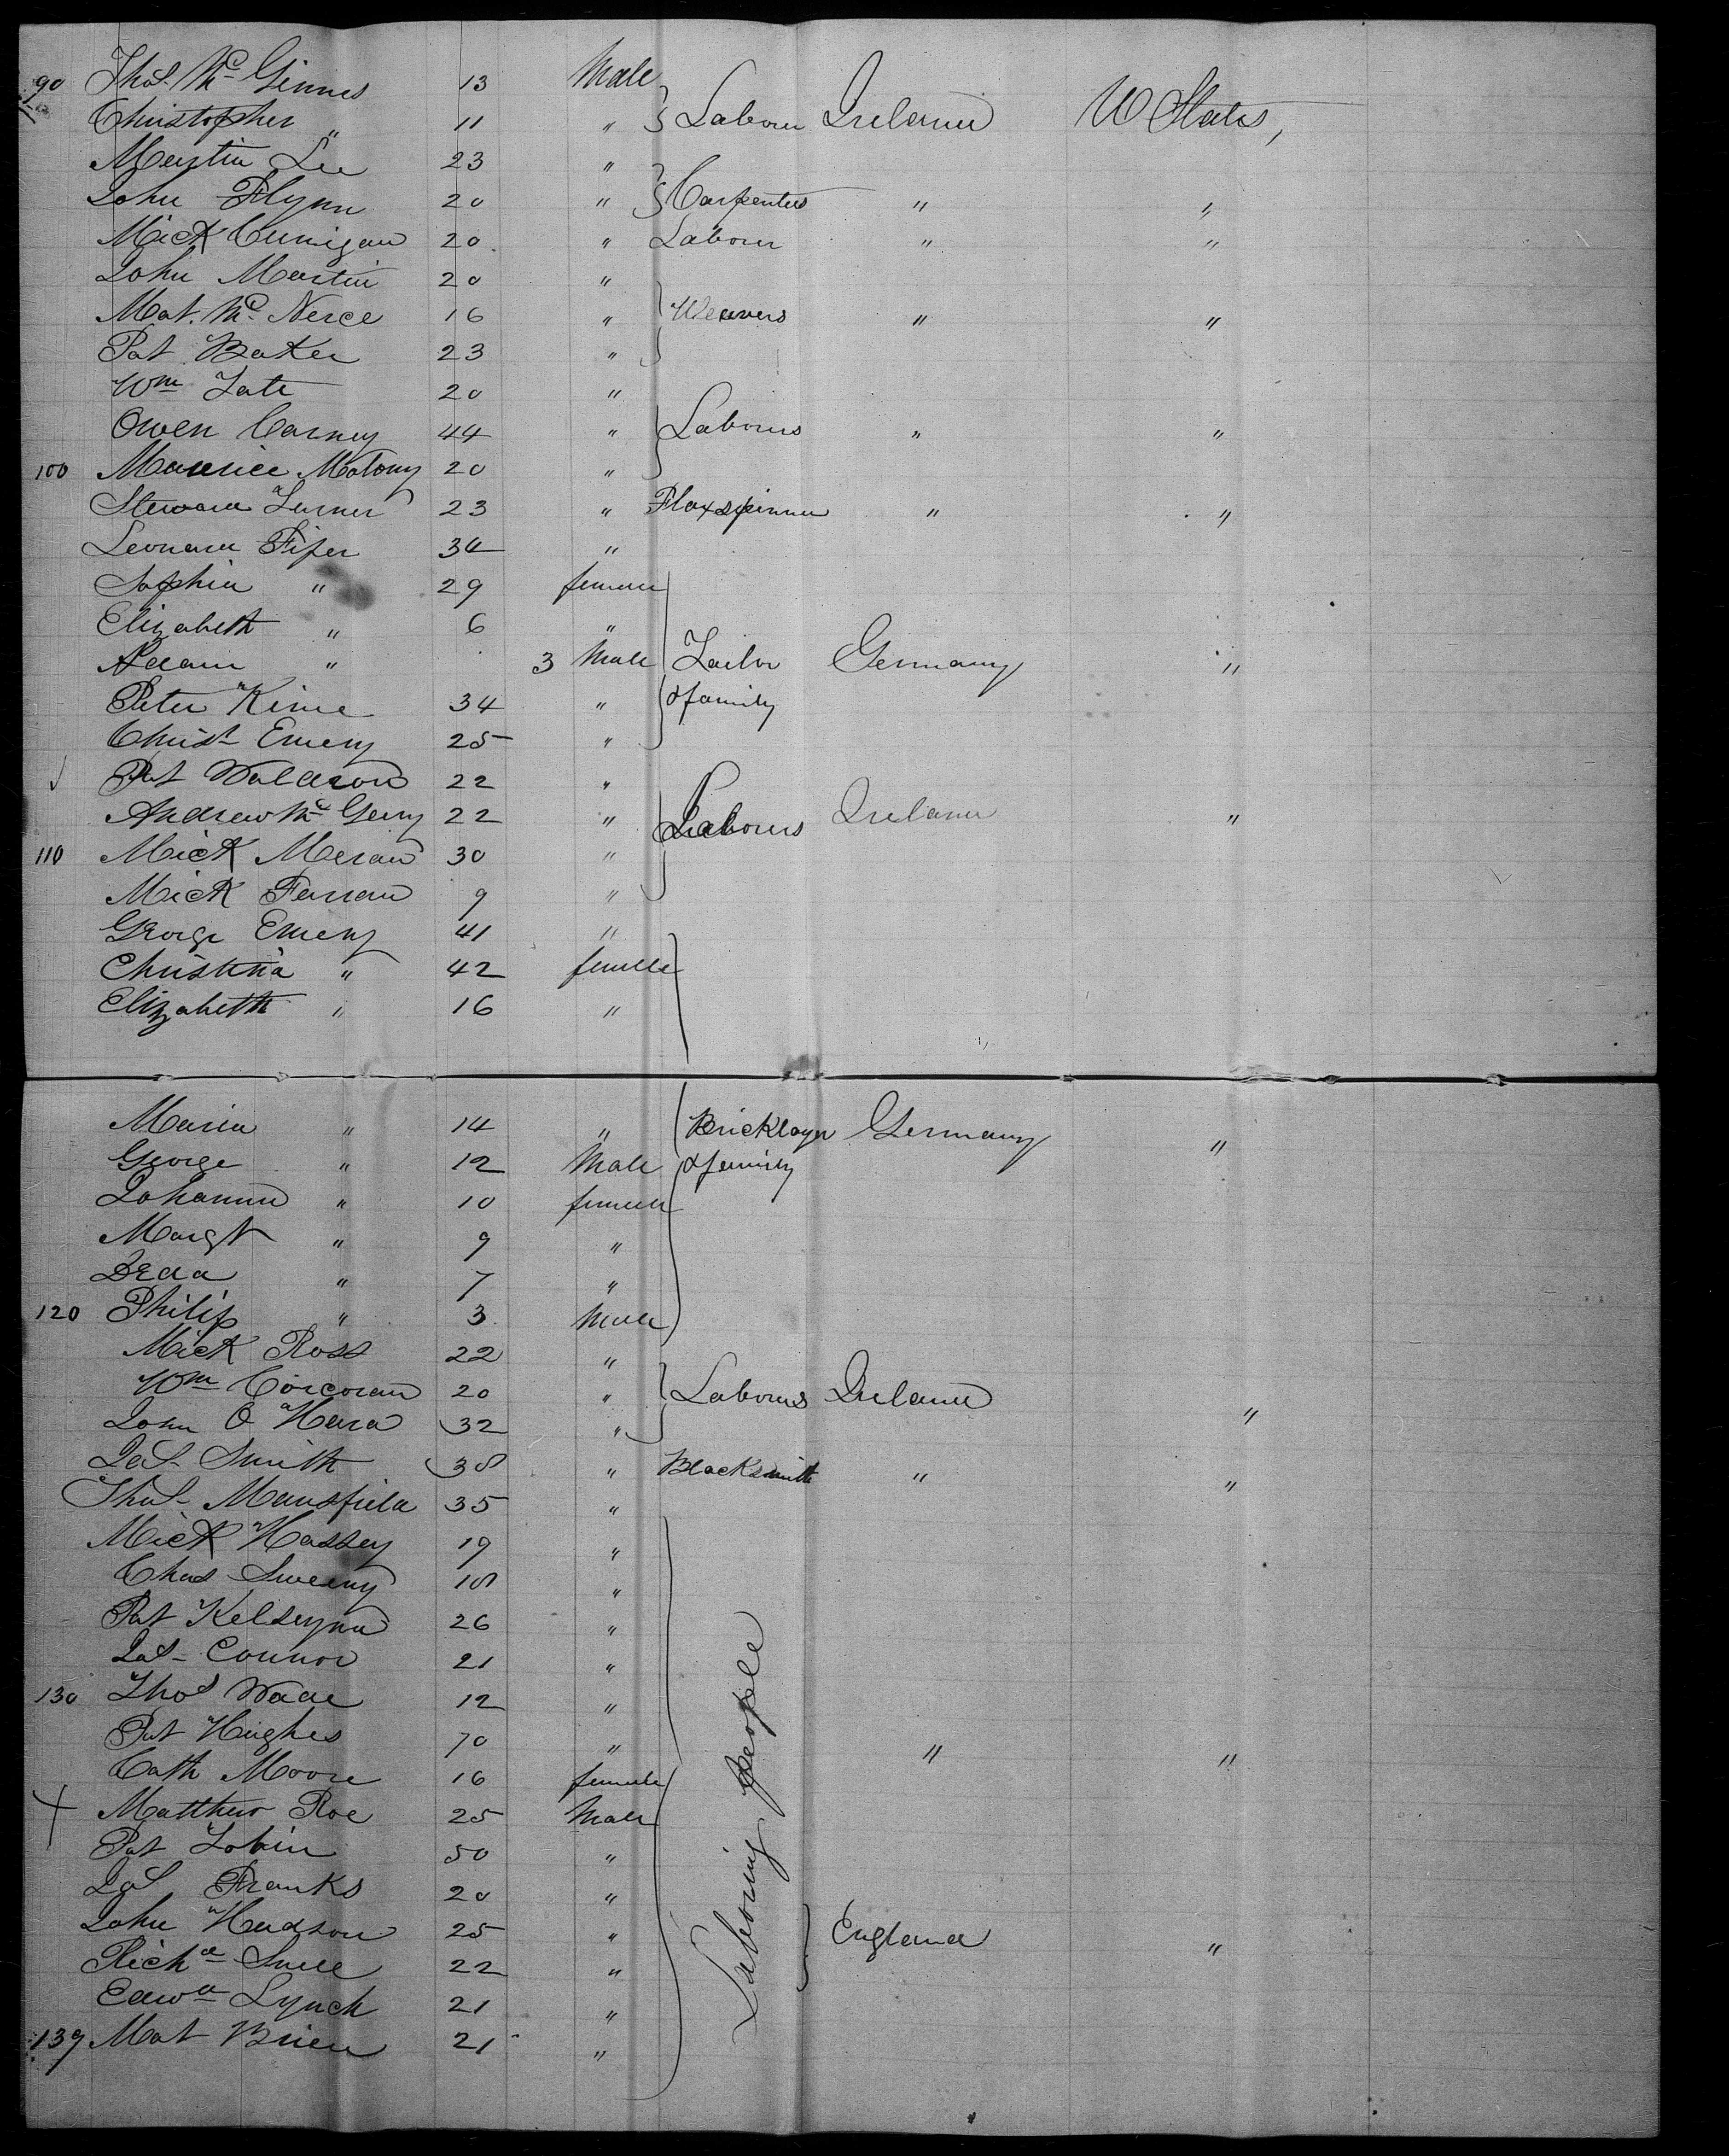 90 Thos. Mc Ginnes 13 Male
Christopher " 11 " Labourer Ireland U States,
Martin Lee 23 "
John Flynn 20 " Carpenters " "
Mick Cunigan 20 " Labour " "
John Martin 20 "
Mat. Mc Nerce 16 " Weavers " "
Pat Baker 23 "
Wm Tate 20 "
Owen Carney 44 " Labourers " "
100 Maurice Matony 20 "
Steward Turner 23 " Flaxspinner " "
Leonard Fifer 34 "
Sophia " 29 female
Elizabeth " 6 "
Adam " 3 Male Tailor Germany "
Peter Kime 34 " & family
Christ Emery 25 "
Pat Waldron 22 "
Andrew Mc Gerry 22 " Labourers Ireland "
110 Mick Meran 30 "
Mick Farran 9 "
George Emery 41 "
Christina " 42 female
Elizabeth " 16 "
Maria " 14 " Bricklayer Germany "
George " 12 Male & family
Johanna " 10 female
Margt " 9 "
" 7 "
120 Philip " 3 Male
Mick Ross 22 "
Wm Corcoran 20 " Labourers Ireland
John O Hara 32 " "
Jas. Smith 38 " Blacksmith " "
Thos. Mansfield 35 "
Mick Hassey 19 "
Chas Sweeny 18 "
Pat 26 "
Jas. Connor 21 "
130 Thos Wade 12 "
Pat Hughes 70 " " "
Cath Moore 16 female
Matthew Roe 25 Male
Pat Tobin 50 " Laboring people
Jas Franks 20 "
John Hudson 25 " England "
Richd Snell 22 "
Edwd Lynch 21 "
139 Mat Brien 21 "